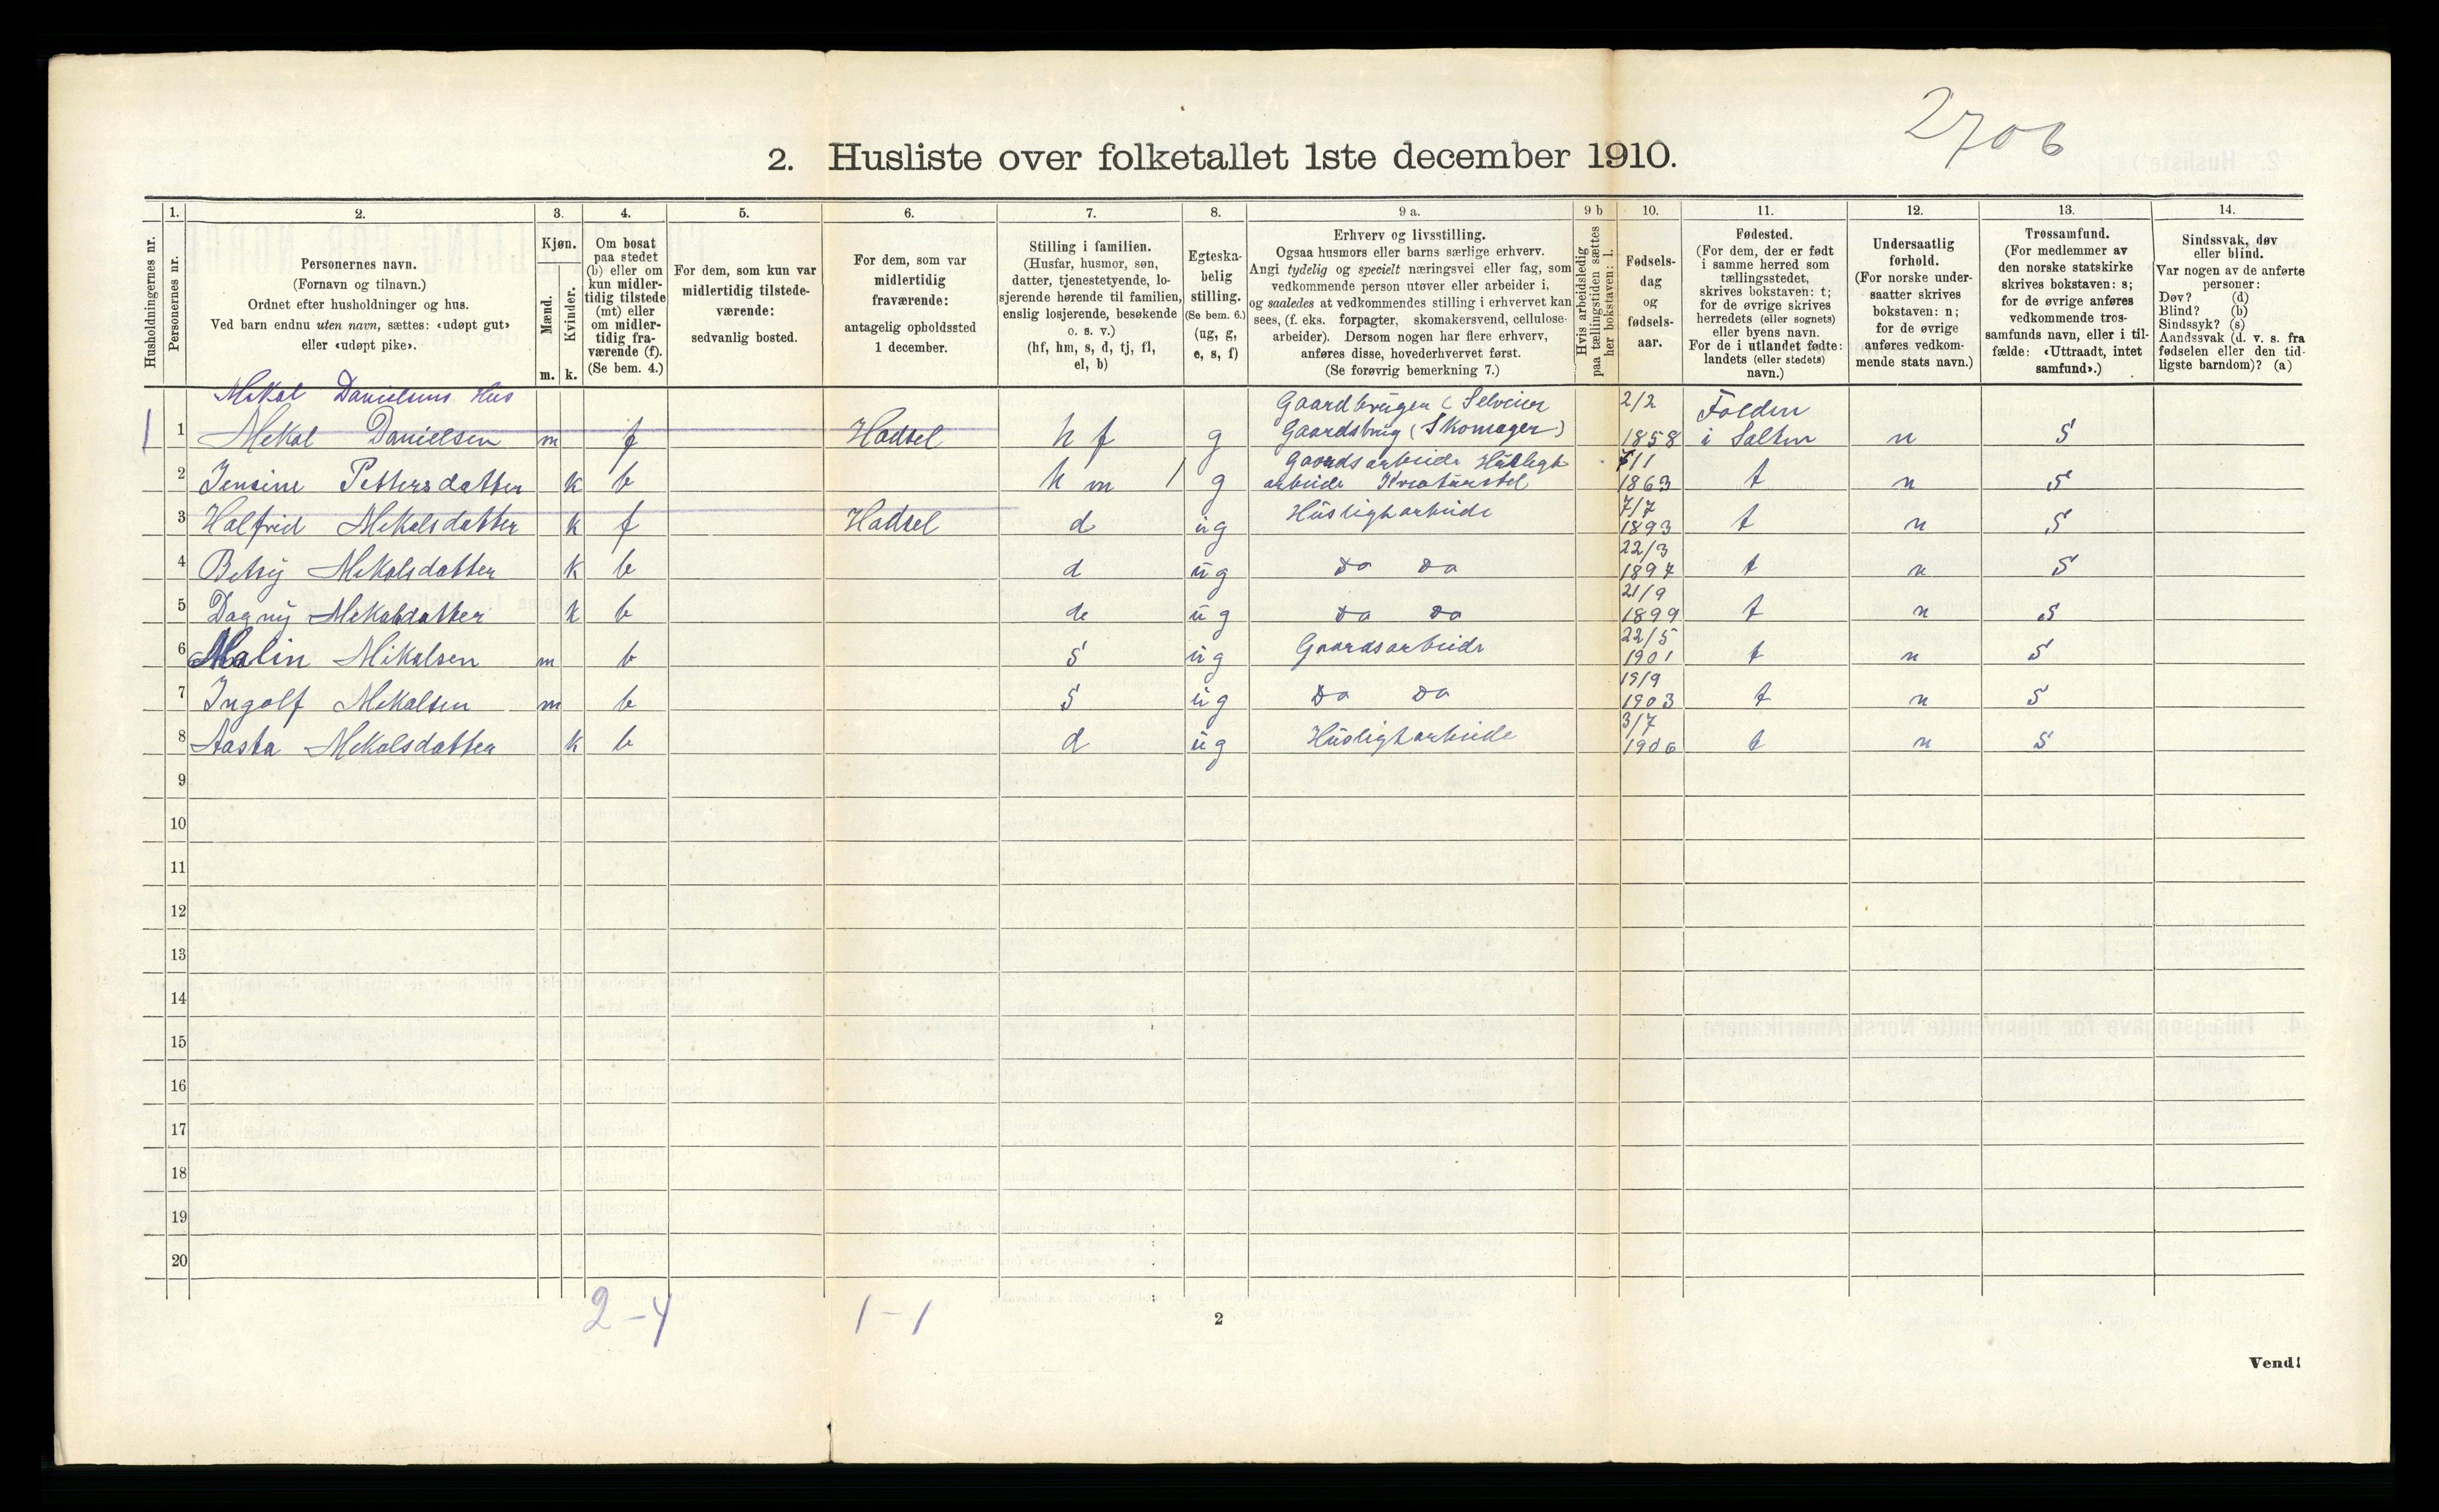 2706
2. Husliste over folketallet 1ste december 1910.
Husholdningernes nr.
1.
Personernes nr.
2.
Personernes navn.
(Fornavn og tilnavn.)
Ordnet efter husholdninger og hus.
Ved barn endnu uten navn, sættes: «udøpt gut»
eller «udøpt pike».
3.
Kjøn.
Mænd.
Kvinder.
m. k.
4.
Om bosat
paa stedet
(b) eller om
kun midler-
tidig tilstede
(mt) eller
om midler-
tidig fra-
værende (f).
(Se bem. 4.)
5.
For dem, som kun var
midlertidig tilstede-
værende:
sedvanlig bosted.
6.
For dem, som var
midlertidig
fraværende:
antagelig opholdssted
1 december.
7.
Stilling i familien.
(Husfar, husmor, søn,
datter, tjenestetyende, lo-
sjerende hørende til familien,
enslig losjerende, besøkende
o. s. v.)
(hf, hm, s, d, tj, fl,
el, b)
8.
Egteska-
belig
stilling.
(Se bem. 6.)
(ug, g,
e, s, f)
9 a.
Erhverv og livsstilling.
Ogsaa husmors eller barns særlige erhverv.
Angi tydelig og specielt næringsvei eller fag, som
vedkommende person utøver eller arbeider i,
og saaledes at vedkommendes stilling i erhvervet kan
sees, (f. eks. forpagter, skomakersvend, cellulose-
arbeider). Dersom nogen har flere erhverv,
anføres disse, hovederhvervet først.
(Se forøvrig bemerkning 7.)
9 b
Hvis arbeidsledig
paa tællingstiden sættes
her bokstaven: l.
10.
Fødsels-
dag
og
fødsels-
aar.
11.
Fødested.
(For dem, der er født
i samme herred som
tællingsstedet,
skrives bokstaven: t;
for de øvrige skrives
herredets (eller sognets)
eller byens navn.
For de i utlandet fødte:
landets (eller stedets)
navn.)
12.
Undersaatlig
forhold.
(For norske under-
saatter skrives
bokstaven: n;
for de øvrige
anføres vedkom-
mende stats navn.)
13.
Trossamfund.
(For medlemmer av
den norske statskirke
skrives bokstaven: s;
for de øvrige anføres
vedkommende tros-
samfunds navn, eller i til-
fælde: «Uttraadt, intet
samfund».)
14.
Sindssvak, døv
eller blind.
Var nogen av de anførte
personer:
Døv? (d)
Blind? (b)
Sindssyk? (s)
Aandssvak (d. v. s. fra
fødselen eller den tid-
ligste barndom)? (a)
Mekal Danielsens Hus Gaardbruger (Selveier 2/2 Folden
1 1 Mekal Danielsen m f Hadsel h f g Gaardsbrug (Skomager) 1858 i Salten n S
Gaardsarbeide Husligt /11
2 Jensine Pettersdatter k b h m / g arbeide Kreaturstel 1863 t n S
7/7
3 Halfrid Mekalsdatter k f Hadsel d ug Husligharbeide 1893 t n S
22/3
4 Betsy Mekalsdatter k b d ug Do Do 1897 t n S
21/9
5 Dagny Mekalsdatter k b d ug Do Do 1899 t n S
22/5
6 Malin Mikalsen m b S ug Gaardsarbeide 1901 t n S
19/9
7 Ingolf Mekalsen m b S ug Do Do 1903 t n S
3/7
8 Aasta Mekalsdatter k b d ug Husligharbeide 1906 t n S
9
10
11
12
13
14
15
16
17
18
19
20
2-4 1-1
2
Vend!